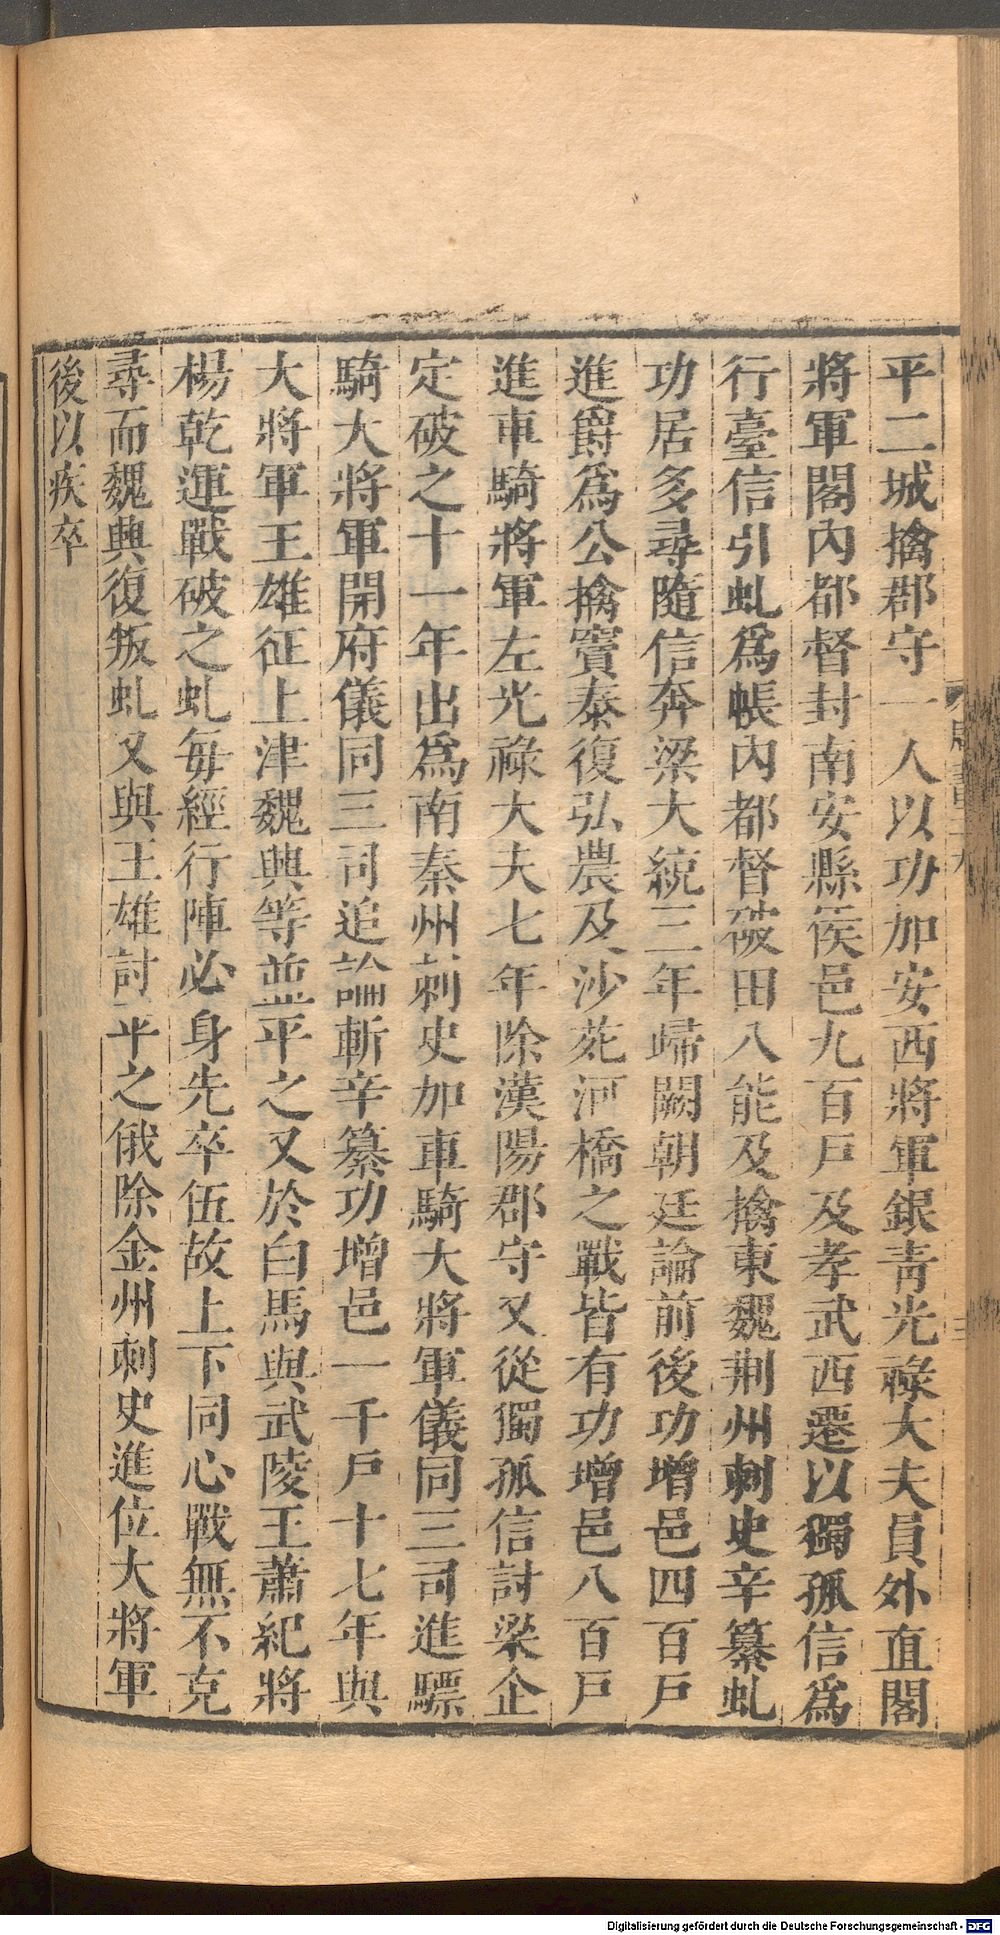 平二城擒郡守一人以功加安西將軍銀靑光祿大夫員外直閣
將軍閣內都督封南安縣侯邑九百戶及孝武西遷以獨孤信爲
行臺信引虬爲帳內都督破田八能及擒東魏荆州刺史辛纂虬
功居多尋隨信奔梁大統三年歸闕朝廷論前後功增邑四百戶
進爵爲公擒竇泰復弘農及沙苑河橋之戰皆有功增邑八百戶
進車騎將軍左光祿大夫七年除漢陽郡守又從獨孤信討梁企
定破之十一年出爲南秦州刺史加車騎大將軍儀同三司進驃
騎大將軍開府儀同三司追論斬辛纂功增邑一千戶十七年與
大將軍王雄征上津魏興等並平之又於白馬與武陵王蕭紀將
楊乾運戰破之虬每經行陣必身先卒伍故上下同心戰無不克
尋而魏興復叛虬又與王雄討平之俄除金州刺史進位大將軍
後以疾卒
Digitalisierung gefördert durch die Deutsche Forschungsgemeinschaft - DFG